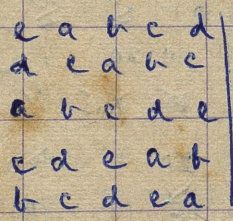 e a b c d
d e a b c
a b c d e
c d e a b
b c d e a